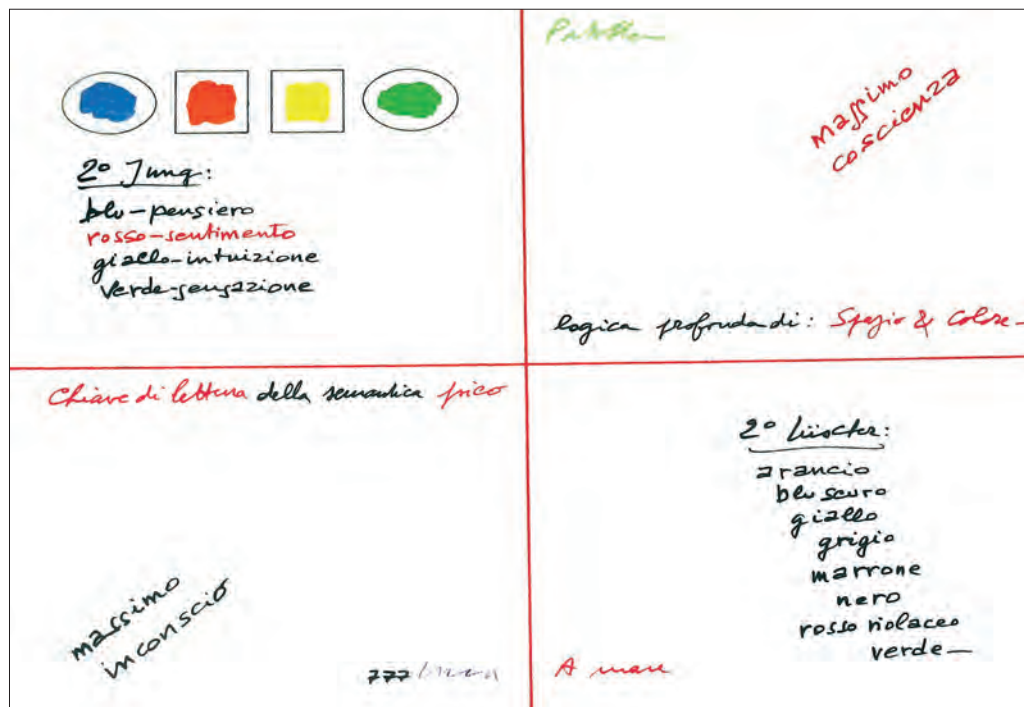 2° Jung:
blu-pensiero
rosso-sentimento
giallo-intuizione
verde-sensazione
massimo
coscienza
logica profonda di: Spazio & Colore-
Chiave di lettura della semantica
massimo
inconscio
777
2° Lüscher:
arancio
blu scuro
giallo
grigio
marrone
nero
rosso violaceo
verde-
A mare